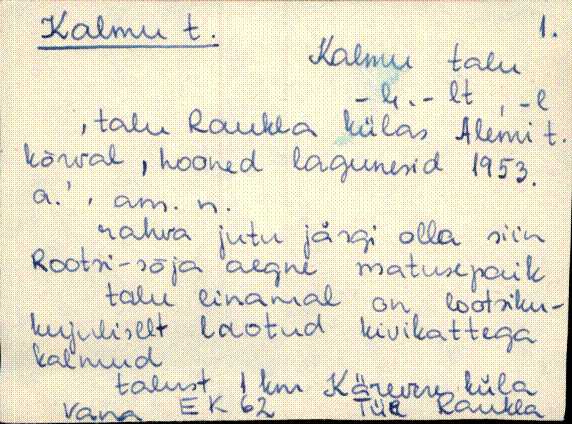 Kalmu t. 1.
Kalmu talu
-le. -lt, -l
'talu Raukla külas Alemi t.
kõrval, hooned lagunesid 1953.
a.', am. n.
rahva jutu järgi olla siin
Rootsi-sõja aegne matusepaik
talu einamal on lootsiku-
kujuliselt laotud kivikattega
kalmud
talust 1 km Kärevere küla
Vana EK 62 Tür Raukla